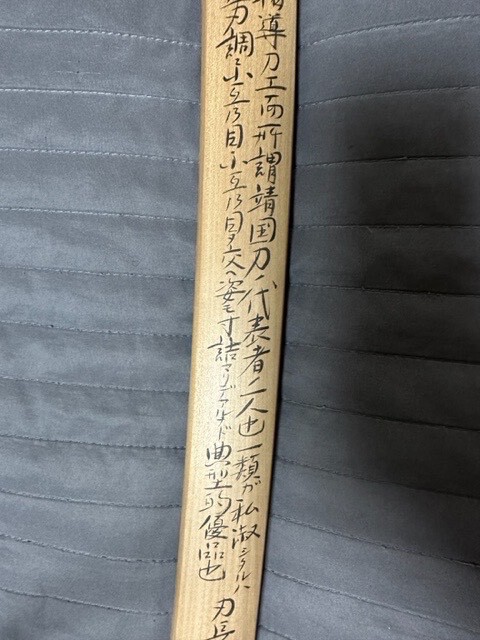 指導刀工而所謂靖国刀ノ代表者ノ一人也一類ガ私淑シタルハ
刃調ニ小互乃目小互乃目交ヘ姿モ寸詰マリデアレド典型的優品也 刃長